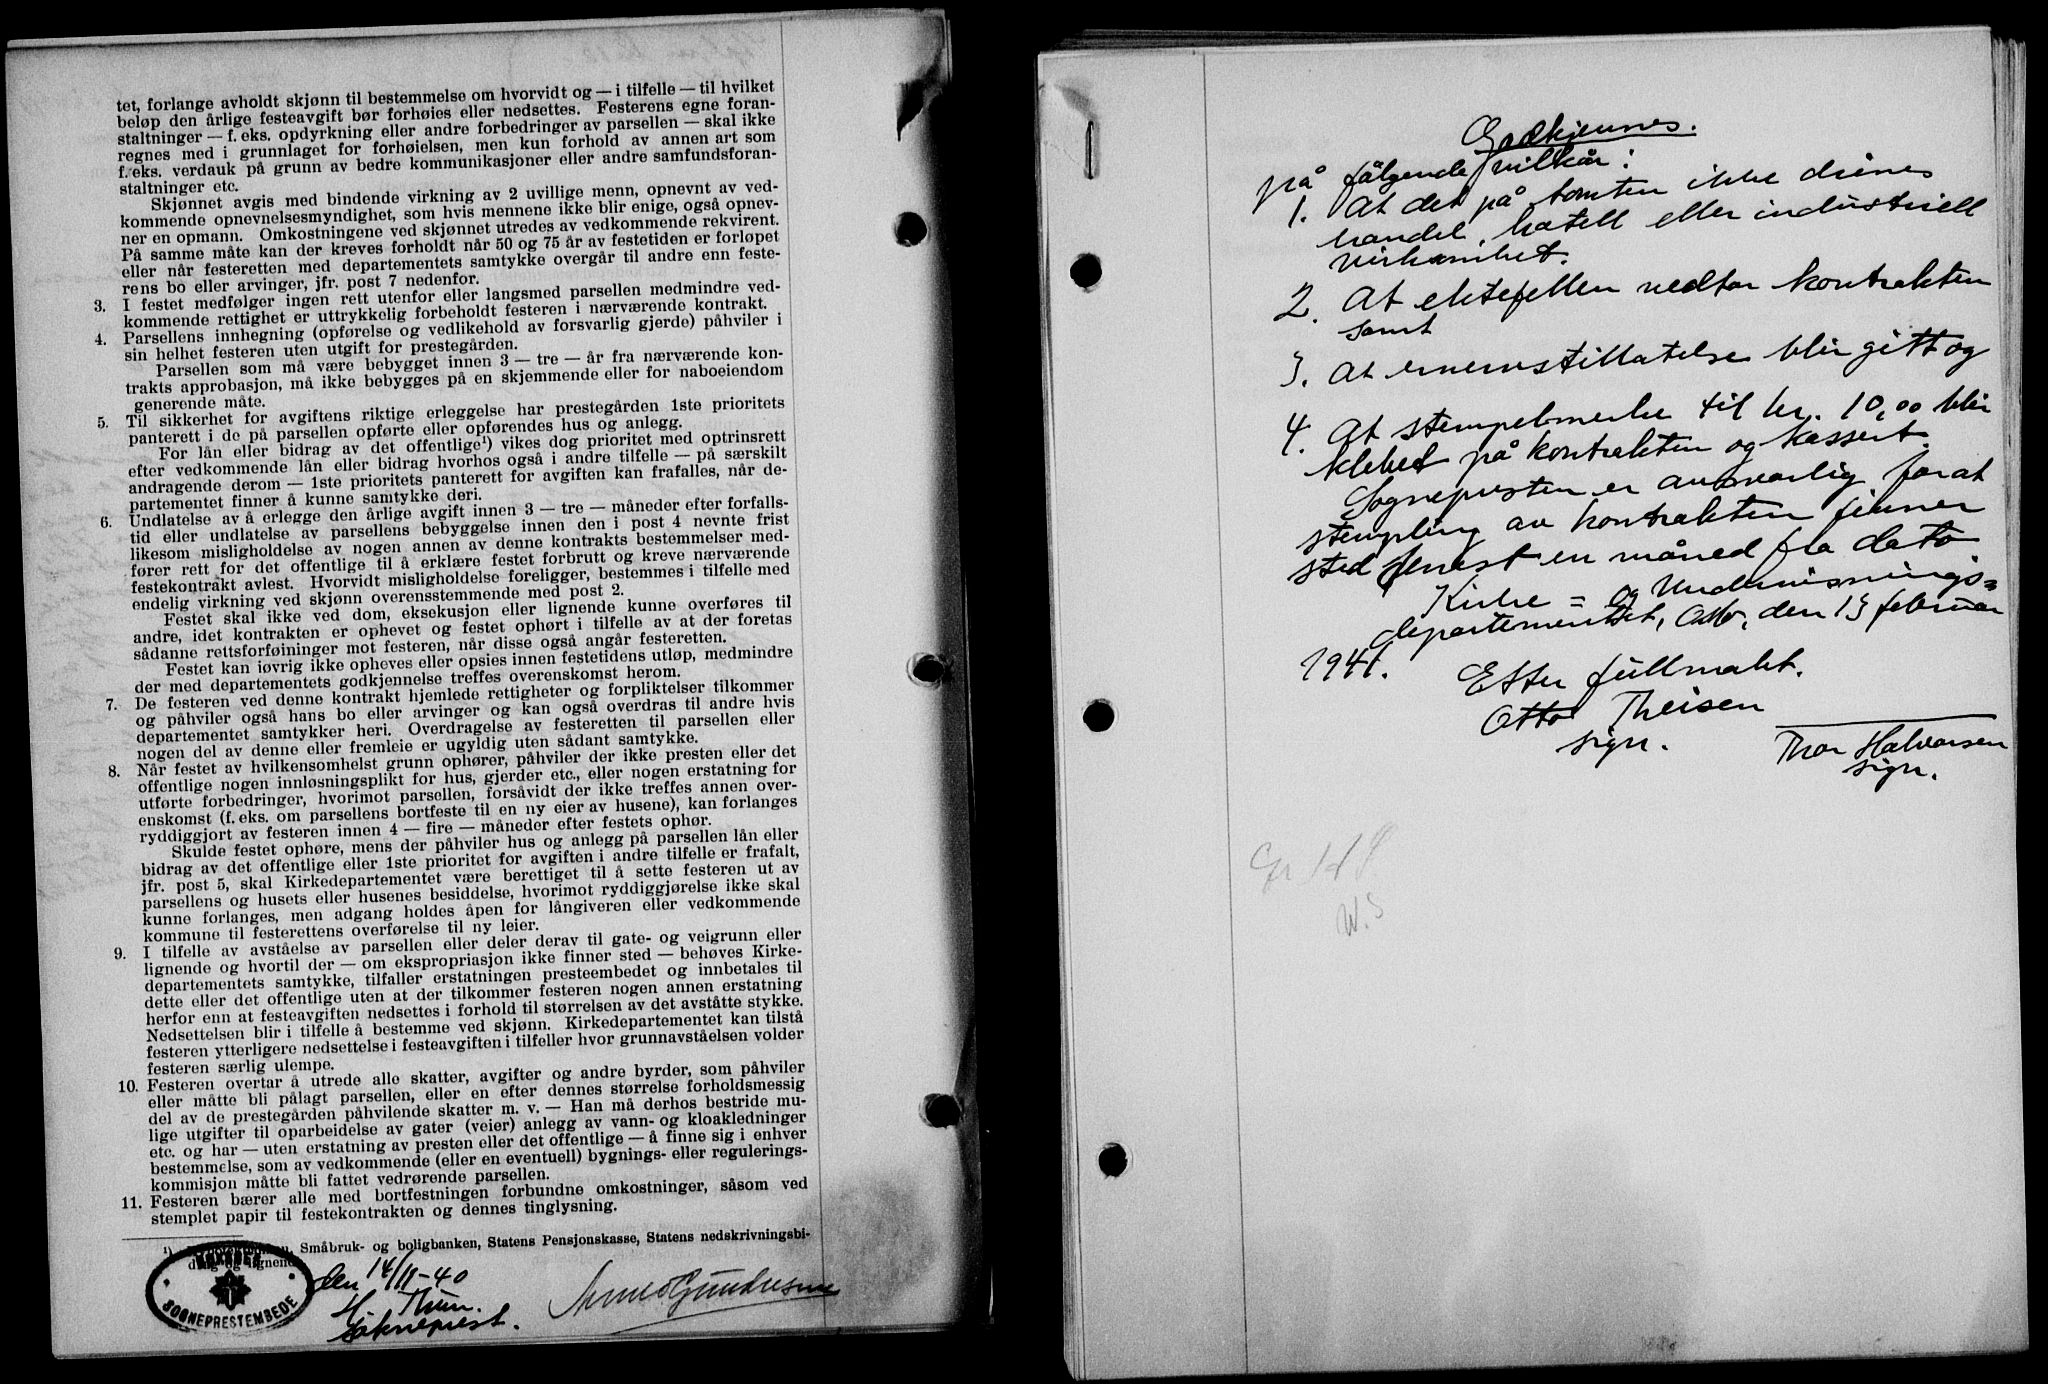 tet, forlange avholdt skjønn til bestemmelse om hvorvidt og — i tilfelle — til hvilket
beløp den årlige festeavgift bør forhøies eller nedsettes. Festerens egne foran-
staltninger — f. eks. opdyrkning eller andre forbedringer av parsellen — skal ikke
regnes med i grunnlaget for forhøielsen, men kun forhold av annen art som
f. eks. verdauk på grunn av bedre kommunikasjoner eller andre samfundsforan-
staltninger etc.
Skjønnet avgis med bindende virkning av 2 uvillige menn, opnevnt av ved-
kommende opnevnelsesmyndighet, som hvis mennene ikke blir enige, også opnev-
ner en opmann. Omkostningene ved skjønnet utredes av vedkommende rekvirent.
På samme måte kan der kreves forholdt når 50 og 75 år av festetiden er forløpet
eller når festeretten med departementets samtykke overgår til andre enn feste-
rens bo eller arvinger, jfr. post 7 nedenfor.
3. I festet medfølger ingen rett utenfor eller langsmed parsellen medmindre ved-
kommende rettighet er uttrykkelig forbeholdt festeren i nærværende kontrakt.
4. Parsellens innhegning (opførelse og vedlikehold av forsvarlig gjerde) påhviler i
sin helhet festeren uten utgift for prestegården.
Parsellen som må være bebygget innen 3 — tre — år fra nærværende kon-
trakts approbasjon, må ikke bebygges på en skjemmende eller for naboeiendom
generende måte.
5. Til sikkerhet for avgiftens riktige erleggelse har prestegården 1ste prioritets
panterett i de på parsellen opførte eller opførendes hus og anlegg.
For lån eller bidrag av det offentlige¹) vikes dog prioritet med optrinsrett
efter vedkommende lån eller bidrag hvorhos også i andre tilfelle — på særskilt
andragende derom — 1ste prioritets panterett for avgiften kan frafalles, når de-
partementet finner å kunne samtykke deri.
6. Undlatelse av å erlegge den årlige avgift innen 3 — tre — måneder efter forfalls-
tid eller undlatelse av parsellens bebyggelse innen den i post 4 nevnte frist
likesom misligholdelse av nogen annen av denne kontrakts bestemmelser med-
fører rett for det offentlige til å erklære festet forbrutt og kreve nærværende
festekontrakt avlest. Hvorvidt misligholdelse foreligger, bestemmes i tilfelle med
endelig virkning ved skjønn overensstemmende med post 2.
Festet skal ikke ved dom, eksekusjon eller lignende kunne overføres til
andre, idet kontrakten er ophevet og festet ophørt i tilfelle av at der foretas
sådanne rettsforføininger mot festeren, når disse også angår festeretten.
Festet kan iøvrig ikke opheves eller opsies innen festetidens utløp, medmindre
der med departementets godkjennelse treffes overenskomst herom.
7. De festeren ved denne kontrakt hjemlede rettigheter og forpliktelser tilkommer
og påhviler også hans bo eller arvinger og kan også overdras til andre hvis
departementet samtykker heri. Overdragelse av festeretten til parsellen eller
nogen del av denne eller fremleie er ugyldig uten sådant samtykke.
8. Når festet av hvilkensomhelst grunn ophører, påhviler der ikke presten eller det
offentlige nogen innløsningsplikt for hus, gjerder etc., eller nogen erstatning for
utførte forbedringer, hvorimot parsellen, forsåvidt der ikke treffes annen over-
enskomst (f. eks. om parsellens bortfeste til en ny eier av husene), kan forlanges
ryddiggjort av festeren innen 4 — fire — måneder efter festets ophør.
Skulde festet ophøre, mens der påhviler hus og anlegg på parsellen lån eller
bidrag av det offentlige eller 1ste prioritet for avgiften i andre tilfelle er frafalt,
jfr. post 5, skal Kirkedepartementet være berettiget til å sette festeren ut av
parsellens og husets eller husenes besiddelse, hvorimot ryddiggjørelse ikke skal
kunne forlanges, men adgang holdes åpen for långiveren eller vedkommende
kommune til festerettens overførelse til ny leier.
9. I tilfelle av avståelse av parsellen eller deler derav til gate- og veigrunn eller
lignende og hvortil der — om ekspropriasjon ikke finner sted — behøves Kirke-
departementets samtykke, tilfaller erstatningen presteembedet og innbetales til
dette eller det offentlige uten at der tilkommer festeren nogen annen erstatning
herfor enn at festeavgiften nedsettes i forhold til størrelsen av det avståtte stykke.
Nedsettelsen blir i tilfelle å bestemme ved skjønn. Kirkedepartementet kan tilstå
festeren ytterligere nedsettelse i festeavgiften i tilfeller hvor grunnavståelsen volder
festeren særlig ulempe.
10. Festeren overtar å utrede alle skatter, avgifter og andre byrder, som påhviler
eller måtte bli pålagt parsellen, eller en efter dennes størrelse forholdsmessig
del av de prestegården påhvilende skatter m. v. — Han må derhos bestride mu-
lige utgifter til oparbeidelse av gater (veier) anlegg av vann- og kloakledninger
etc. og har — uten erstatning av presten eller det offentlige — å finne sig i enhver
bestemmelse, som av vedkommende (eller en eventuell) bygnings- eller regulerings-
kommisjon måtte bli fattet vedrørende parsellen.
11. Festeren bærer alle med bortfestningen forbundne omkostninger, såsom ved
stemplet papir til festekontrakten og dennes tinglysning.
¹) Småbruk- og boligbanken, Statens Pensjonskasse, Statens nedskrivningsbi-
drag og lignende
SOGNEPRESTEMBEDE
den 14/11-40
H. Thun.
Sokneprest.
Godkjennes.
på følgende vilkår:
1. At det på tomten ikke drives
handel, hotell eller industriell
virksomhet.
2. At ektefellen vedtar kontrakten
samt
3. At evnenstillatelse blir gitt og
4. At stempelmerke til kr. 10,00 blir
klebet på kontrakten og kassert.
Sognepresten er ansvarlig for at
stempling av kontrakten finner
sted senest en måned fra dato
Kirke= og Undervisnings=
departementet, Oslo, den 13 februar
1941.
Etter fullmakt.
Otto Theisen
sign.
Thor Halvorsen
sign.